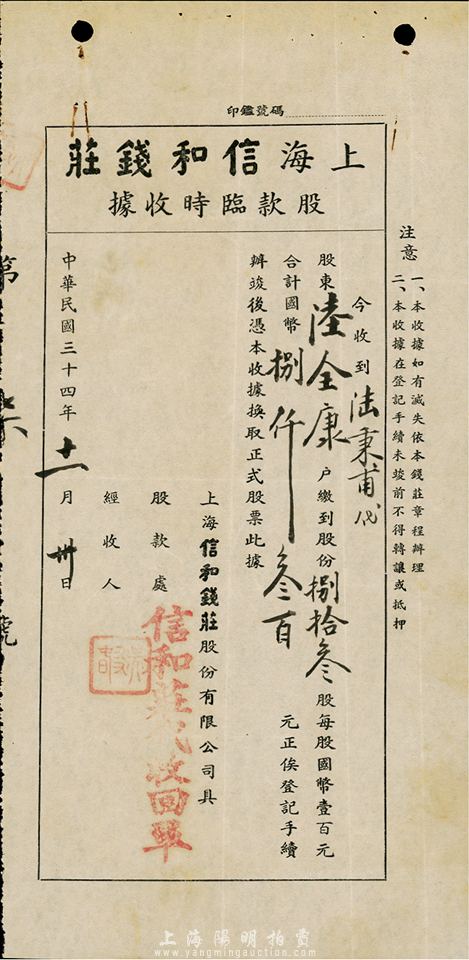 印鑑號碼
上海信和錢莊
股款臨時收據
注意
一、本收據如有滅失依本錢莊章程辦理
二、本收據在登記手續未竣前不得轉讓或抵押
今收到陸秉甫代
股東陸全康戶繳到股份捌拾叁股每股國幣壹百元
合計國幣捌仟叁百元正俟登記手續
辦竣後憑本收據換取正式股票此據
上海信和錢莊股份有限公司具
股款處
信和莊代收回單
經收人
中華民國三十四年十一月卅日
第
號
上海陽明拍賣
www.yangmingauction.com